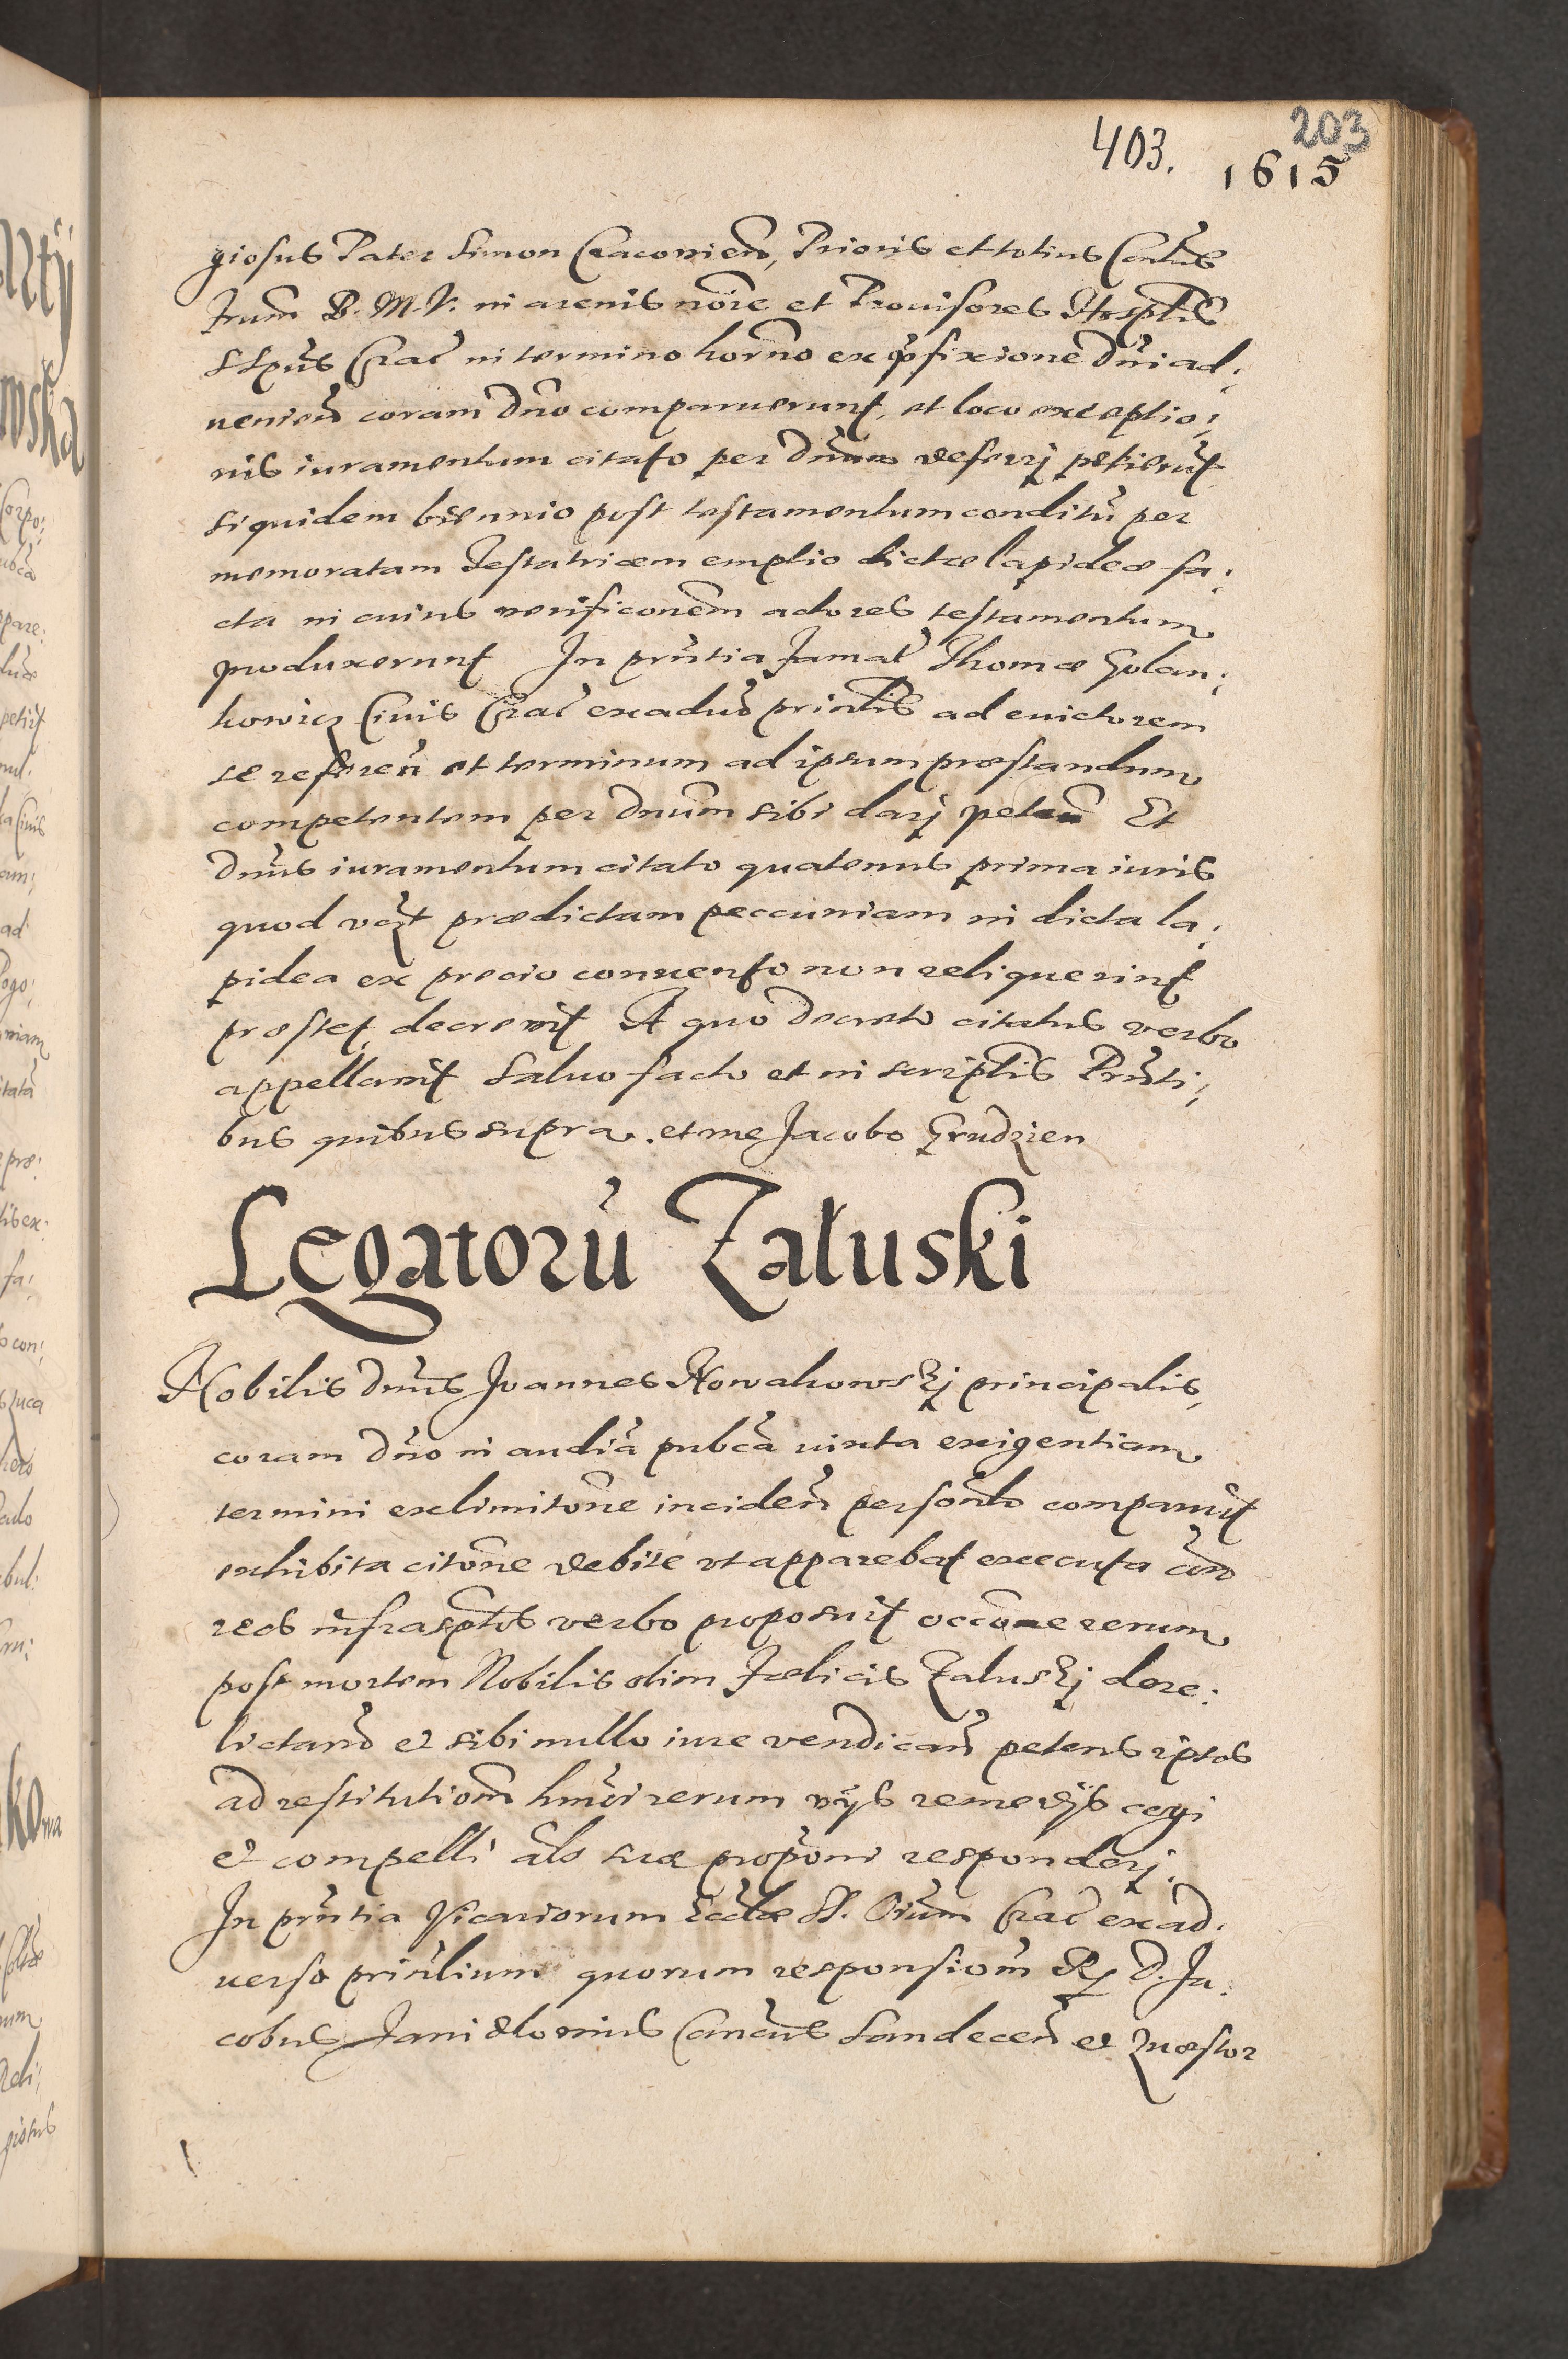 403. 203
1615
giosus Pater Simon Cracovien, Prioris et totius Contus
Frum B. M. V. in arenis noie et Provisores Hosptlis
S Spus Crac in termino horno ex pfixione Dni ad:
uenien coram Dno comparuerunt, et loco exceptio:
nis iuramentum citato per Dnum deferrj petierut
siquidem biennio post testamentum conditu per
memoratam Testatricem emptio dictæ lapideæ fa:
cta in cuius verificonem actores testamentum
produxerunt In pntia Famat Thomæ Golan:
kowicz Civis Crac ex aduo prinlis ad euictorem
se referen et terminum ad ipsum præstandum
competentem per Dnum sibi darj peten Et
Dnus iuramentum citato quatenus prima iuris
quod vczt prædictam peccuniam in dicta la:
pidea ex precio conuento non reliquerint
præstet, decrevit A quo Decreto citatus verbo
appellavit Saluo facto et in scriptis Pnti:
bus quibus supra. et me Jacobo Grudzien
Legatorū Załuski
Nobilis Dnus Joannes Nowakowskj principalis,
coram Dno in audia pubca iuxta exigentiam
termini exlimitone inciden personlr comparuit
exhibita citone debite vt apparebat executa con
reos infrasptos verbo proposuit occone rerum
post mortem Nobilis olim Fœlicis Zaluskj dere:
lictaru et sibi nullo iure vendican petens iptos
ad restitutiom hmoi rerum vijs remedijs cogi
et compelli als suæ proponi responderj.
In pntia Vicariorum Ecclæ SS. Oium Crac ex ad:
uerso prinlium quorum responsiom R. D. Ja:
cobus Janidlovius Cancus Sandecen et Quæstor